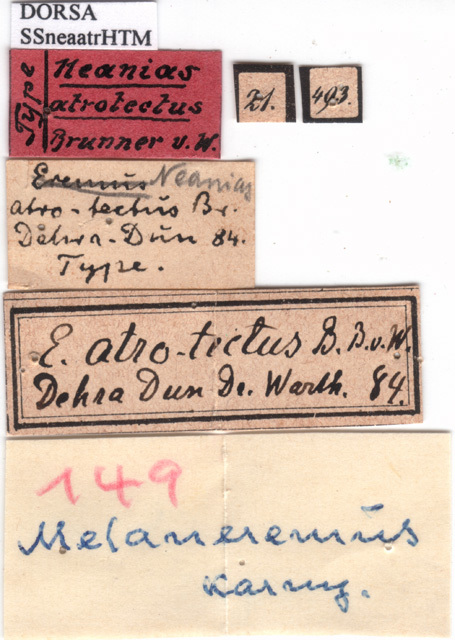 DORSA
SSneaatrHTM
Type
Neanias
atrotectus
Brunner v. W.
21.
493.
Eremus Neanias
atro-tectus Br.
Dehra-Dun 84.
Type.
E. atro-tectus B. B. v. W.
Dehra Dun Dr. Warth. 84.
149
Melaneremus
Karny.